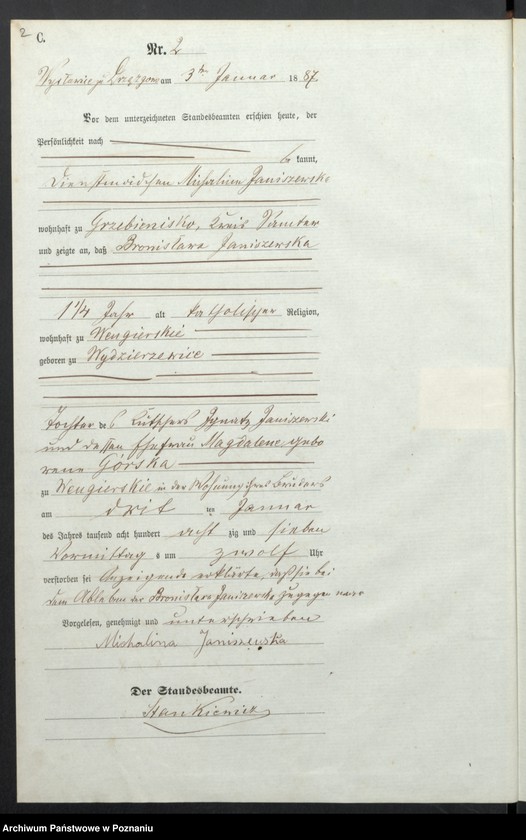 2
C.
Nr. 2
am 3ten Januar 1887.
Vor dem unterzeichneten Standesbeamten erschien heute, der
Persönlichkeit nach
be kannt,
Dienstmädchen Michalina Janiszewska
wohnhaft zu Grzebienisko, Kreis Samter
und zeigte an, daß Bronislawa Janiszewska
1 1/4 Jahr alt katholischer Religion,
wohnhaft zu Wengierskie
geboren zu Wydzierzewice
Tochter des Kutschers Ignatz Janiszewski
und dessen Ehefrau Magdalene gebo
rene Górska
zu Wengierskie in der Wohnung ihres Bruders
am drit ten Januar
des Jahres tausend acht hundert acht zig und sieben
Vormittag s um zwölf Uhr
verstorben sei Anzeigende erklärte, daß sie bei
dem Ableben der Bronislawa Janiszewska zugegen war
Vorgelesen, genehmigt und unterschrieben
Michalina Janiszewska
Der Standesbeamte.
Stankiewicz
Archiwum Państwowe w Poznaniu